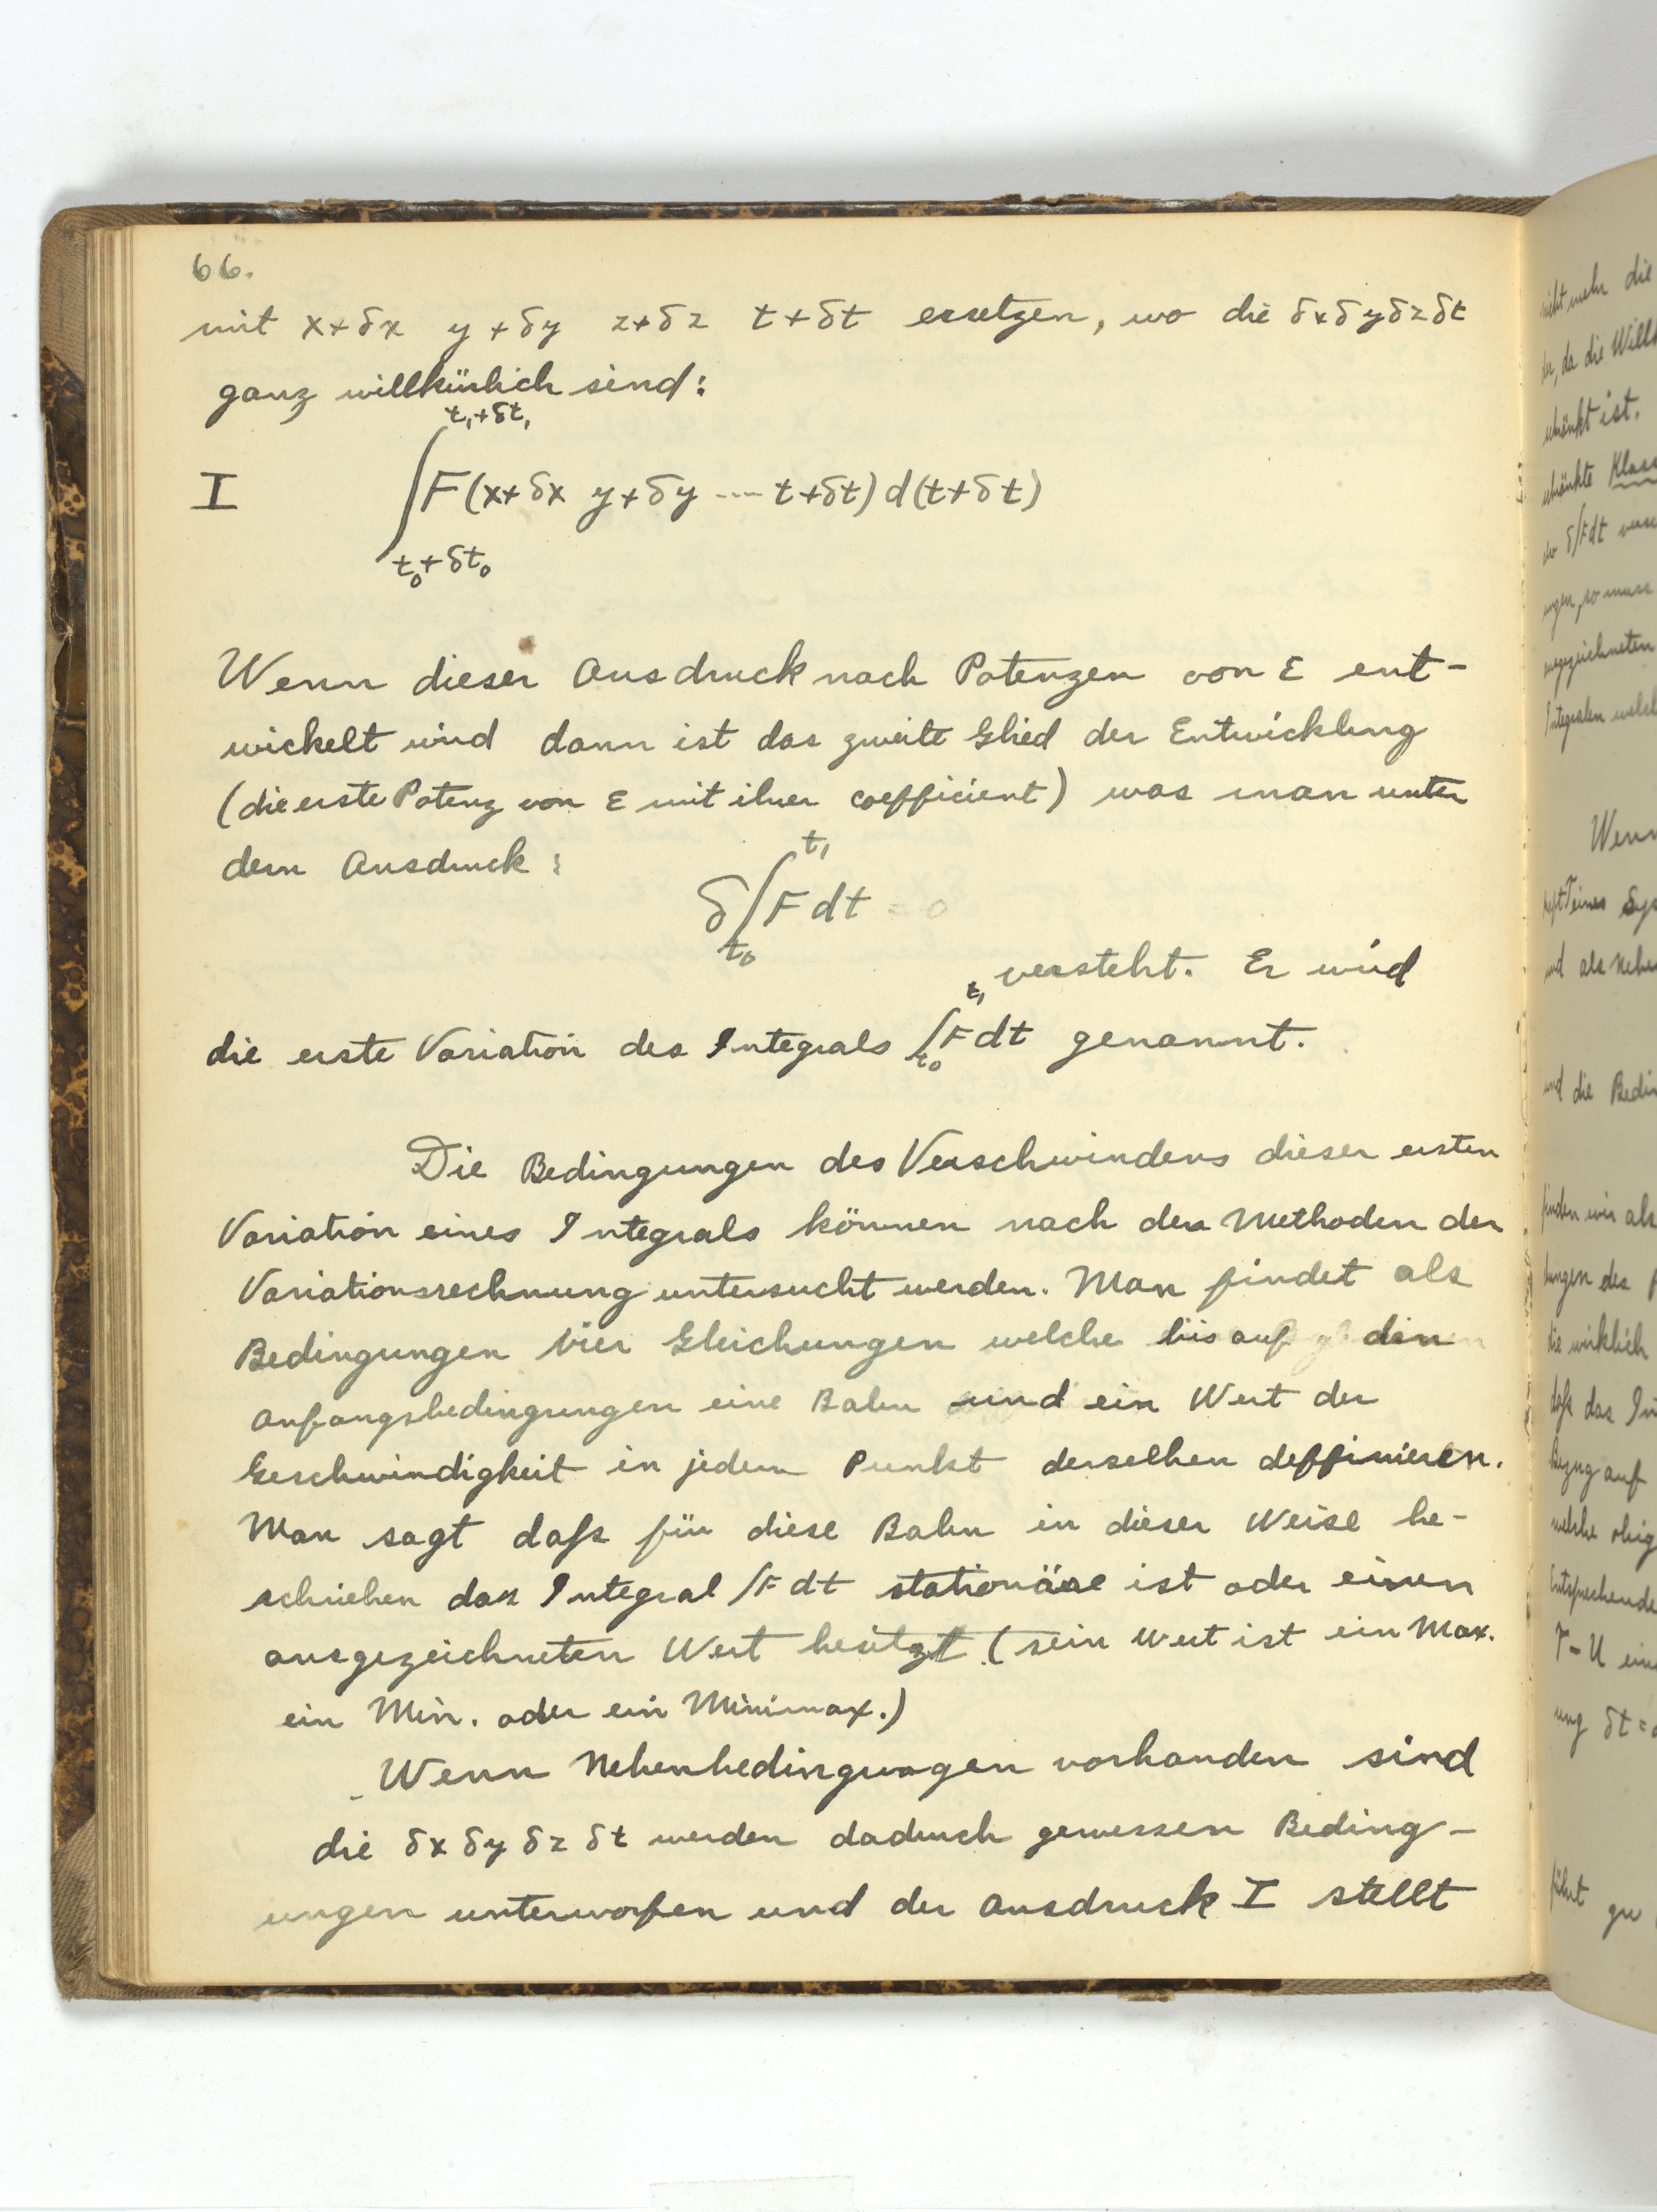 66.
mit x+δx y+δy z+δz t+δt ersetzen, wo die δx δy δz δt
ganz willkürlich sind:
t₁+δt₁
I ∫F(x+δx y+δy ---- t+δt) d(t+δt)
t₀+δt₀
Wenn dieser Ausdruck nach Potenzen von ε ent-
wickelt wird dann ist das zweite Glied der Entwicklung
(die erste Potenz von ε mit ihrer coefficient) was man unter
dem Ausdruck:
t₁
δ∫F dt = 0
t₀
versteht. Er wird
die erste Variation des Integrals ∫F dt genannt.
t₁
t₀
Die Bedingungen des Verschwindens dieser ersten
Variation eines Integrals können nach den Methoden der
Variationsrechnung untersucht werden. Man findet als
Bedingungen vier Gleichungen welche bis auf den
Anfangsbedingungen eine Bahn und ein Wert der
Geschwindigkeit in jedem Punkt derselben deffinieren.
Man sagt daß für diese Bahn in dieser Weise be-
schrieben das Integral ∫F dt stationäre ist oder einen
ausgezeichneten Wert besitzt (sein Wert ist ein Max.
ein Min. oder ein Minimax.)
Wenn Nebenbedingungen vorhanden sind
die δx δy δz δt werden dadurch gewissen Beding-
ungen unterworfen und der Ausdruck I stellt
nicht mehr die
da die
ist.
∫F dt
Wenn
und die
finden wir als
die wirklich
daß das
Bezug auf
welche
T-U
δt =